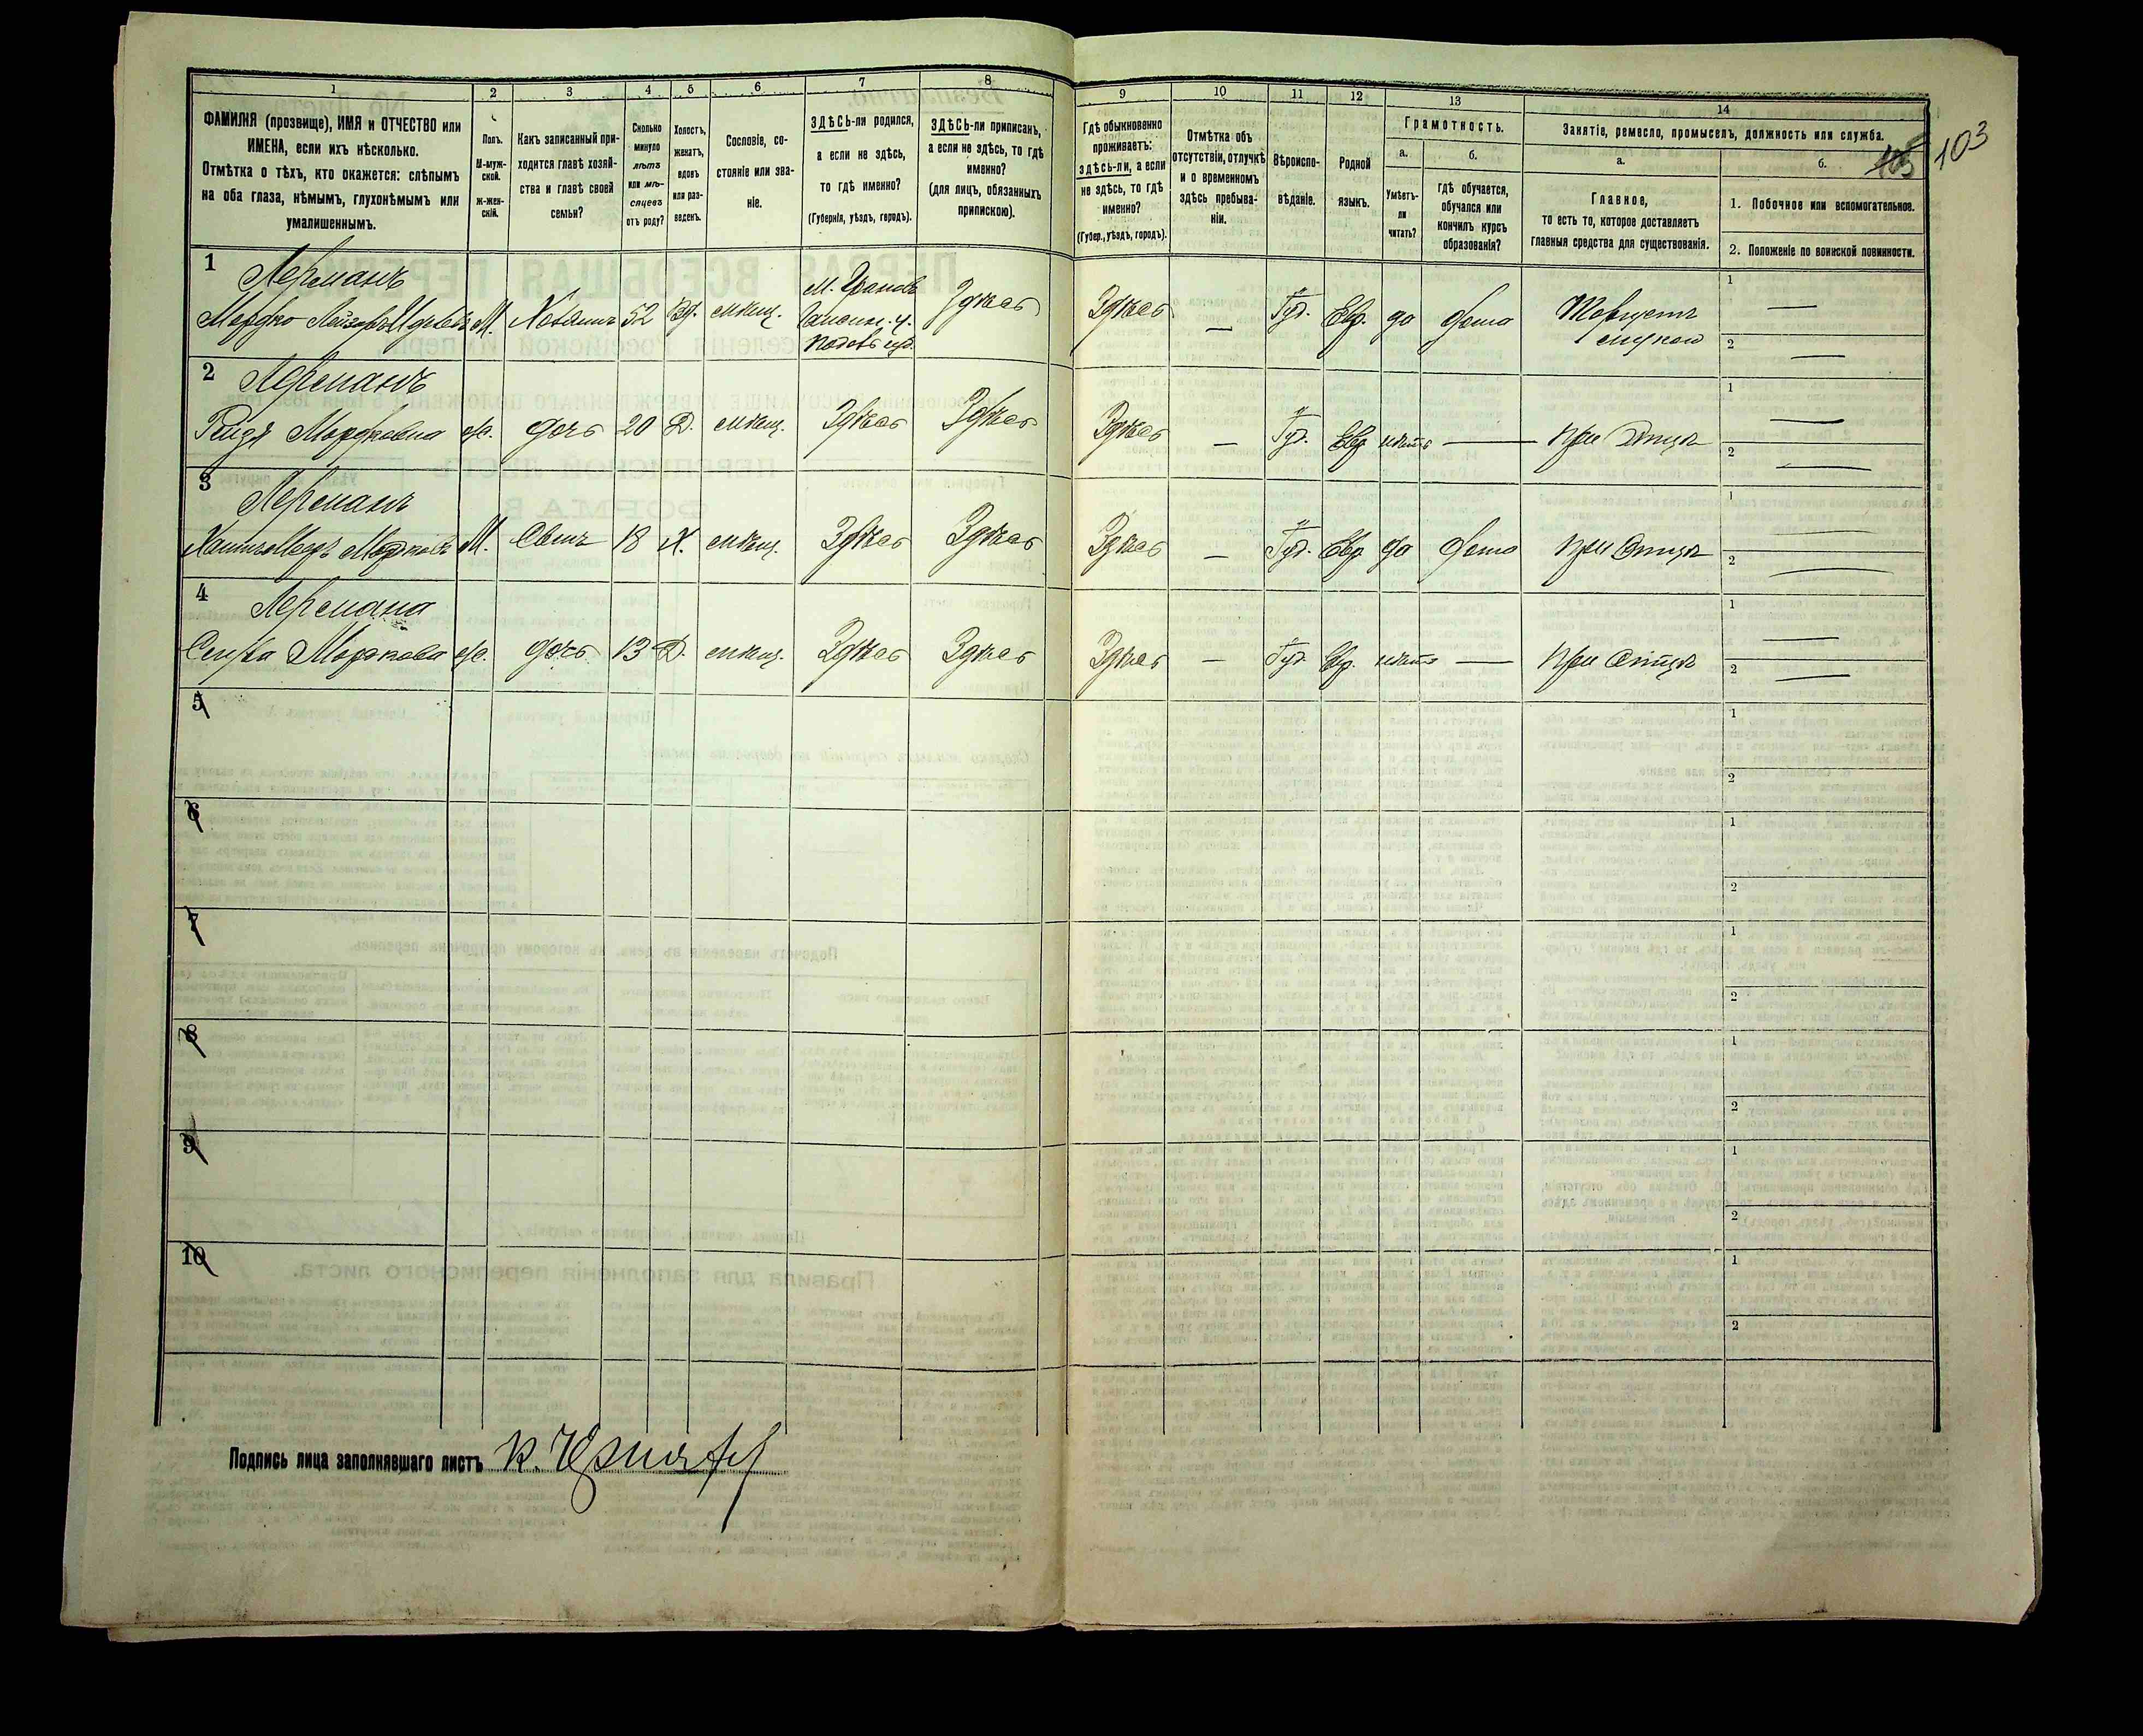 1
2
3
4
5
6
7
8
9
10
11
12
13
14
ФАМИЛІЯ (прозвище), ИМЯ и ОТЧЕСТВО или
ИМЕНА, если ихъ нѣсколько.
Отмѣтка о тѣхъ, кто окажется: слѣпымъ
на оба глаза, нѣмымъ, глухонѣмымъ или
умалишеннымъ.
Полъ.
М-муж-
ской.
Ж-жен-
скій.
Какъ записанный при-
ходится главѣ хозяй-
ства и главѣ своей
семьи?
Сколько
минуло
лѣтъ
или мѣ-
сяцевъ
отъ роду?
Холостъ,
женатъ,
вдовъ
или раз-
веденъ.
Сословіе, со-
стояніе или зва-
ніе.
ЗДѢСЬ-ли родился,
а если не здѣсь,
то гдѣ именно?
(Губернія, уѣздъ, городъ).
ЗДѢСЬ-ли приписанъ,
а если не здѣсь, то гдѣ
именно?
(для лицъ, обязанныхъ
припискою).
Гдѣ обыкновенно
проживаетъ:
здѣсь-ли, а если
не здѣсь, то гдѣ
именно?
(Губер., уѣздъ, городъ).
Отмѣтка объ
отсутствіи, отлучкѣ
и о временномъ
здѣсь пребыва-
ніи.
Вѣроиспо-
вѣданіе.
Родной
языкъ.
Грамотность.
а.
Умѣетъ-
ли
читать?
б.
гдѣ обучается,
обучался или
кончилъ курсъ
образованія?
Занятіе, ремесло, промыселъ, должность или служба.
а.
Главное,
то есть то, которое доставляетъ
главныя средства для существованія.
б.
1. Побочное или вспомогательное.
2. Положеніе по воинской повинности.
103
1 Лерманъ
Мордко М. Хозяинъ 52 Вд. мѣщ. Здѣсь Здѣсь — Іуд. Евр. да дома
1 —
2 —
2 Лерманъ
Рейзя Мордковна ж. дочь 20 Д. мѣщ. Здѣсь Здѣсь Здѣсь — Іуд. Евр. нѣтъ — при отцѣ
1 —
2 —
3 Лерманъ
М. Сынъ 18 Х. мѣщ. Здѣсь Здѣсь Здѣсь — Іуд. Евр. да дома при отцѣ
1 —
2 —
4 Лермана
Мордкова ж. дочь 13 Д. мѣщ. Здѣсь Здѣсь Здѣсь — Іуд. Евр. нѣтъ — при отцѣ
1 —
2 —
5
1
2
6
1
2
7
1
2
8
1
2
9
1
2
10
1
2
Подпись лица заполнявшаго листъ